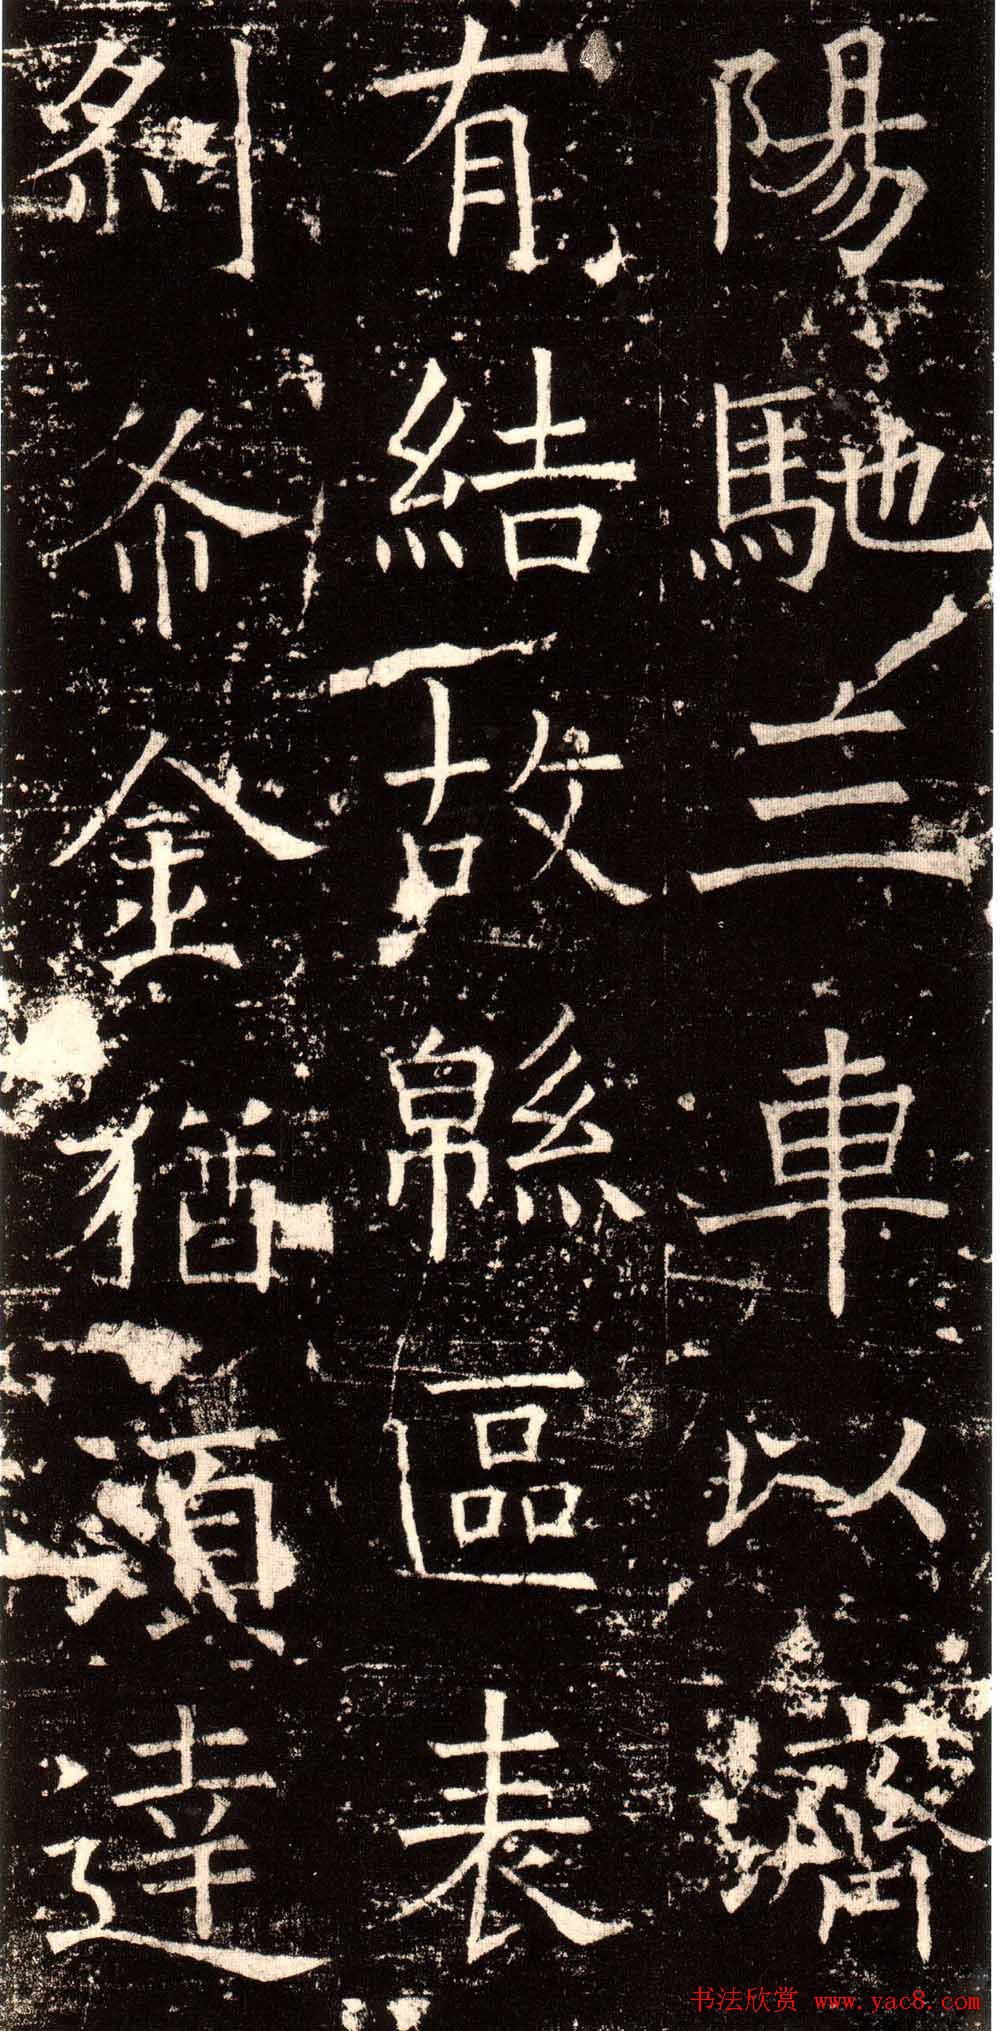 陽馳三車以濟
有結故緜區表
刹布金猶須達
书法欣赏 www.yac8.com